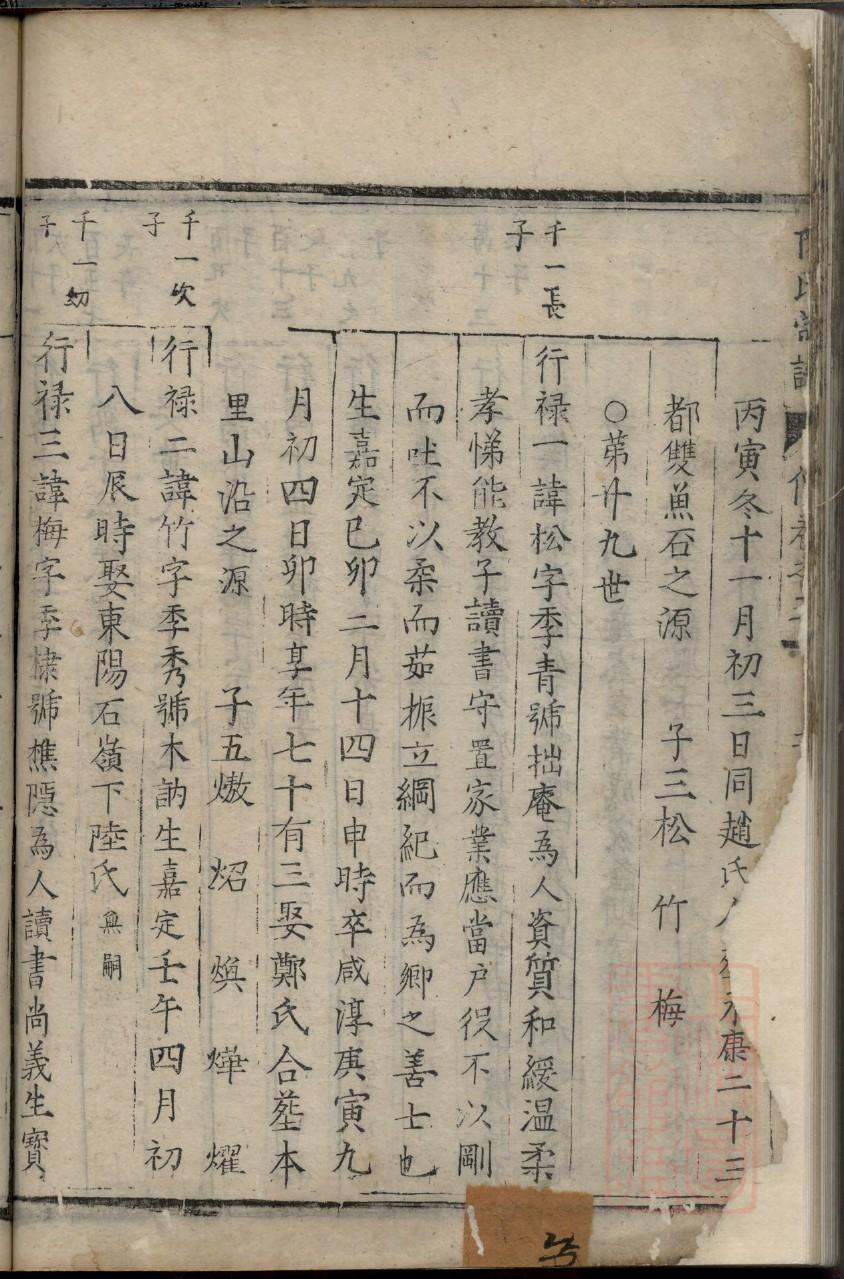 丙寅冬十一月初三日同趙氏 永康二十三
都雙魚石之源　子三松　竹　梅
○第廿九世
千一長子
行禄一諱松字季青號拙庵為人資質和緩温柔
孝悌能教子讀書守置家業應當户役不以剛
而吐不以柔而茹振立綱紀而為鄉之善士也
生嘉定己卯二月十四日申時卒咸淳庚寅九
月初四日卯時享年七十有三娶鄭氏合塟本
里山沿之源　子五燉　炤　煥　燁　燿
千一次子
行禄二諱竹字季秀號木訥生嘉定壬午四月初
八日辰時娶東陽石嶺下陸氏無嗣
千一幼子
行禄三諱梅字季棣號樵隱為人讀書尚義生寳